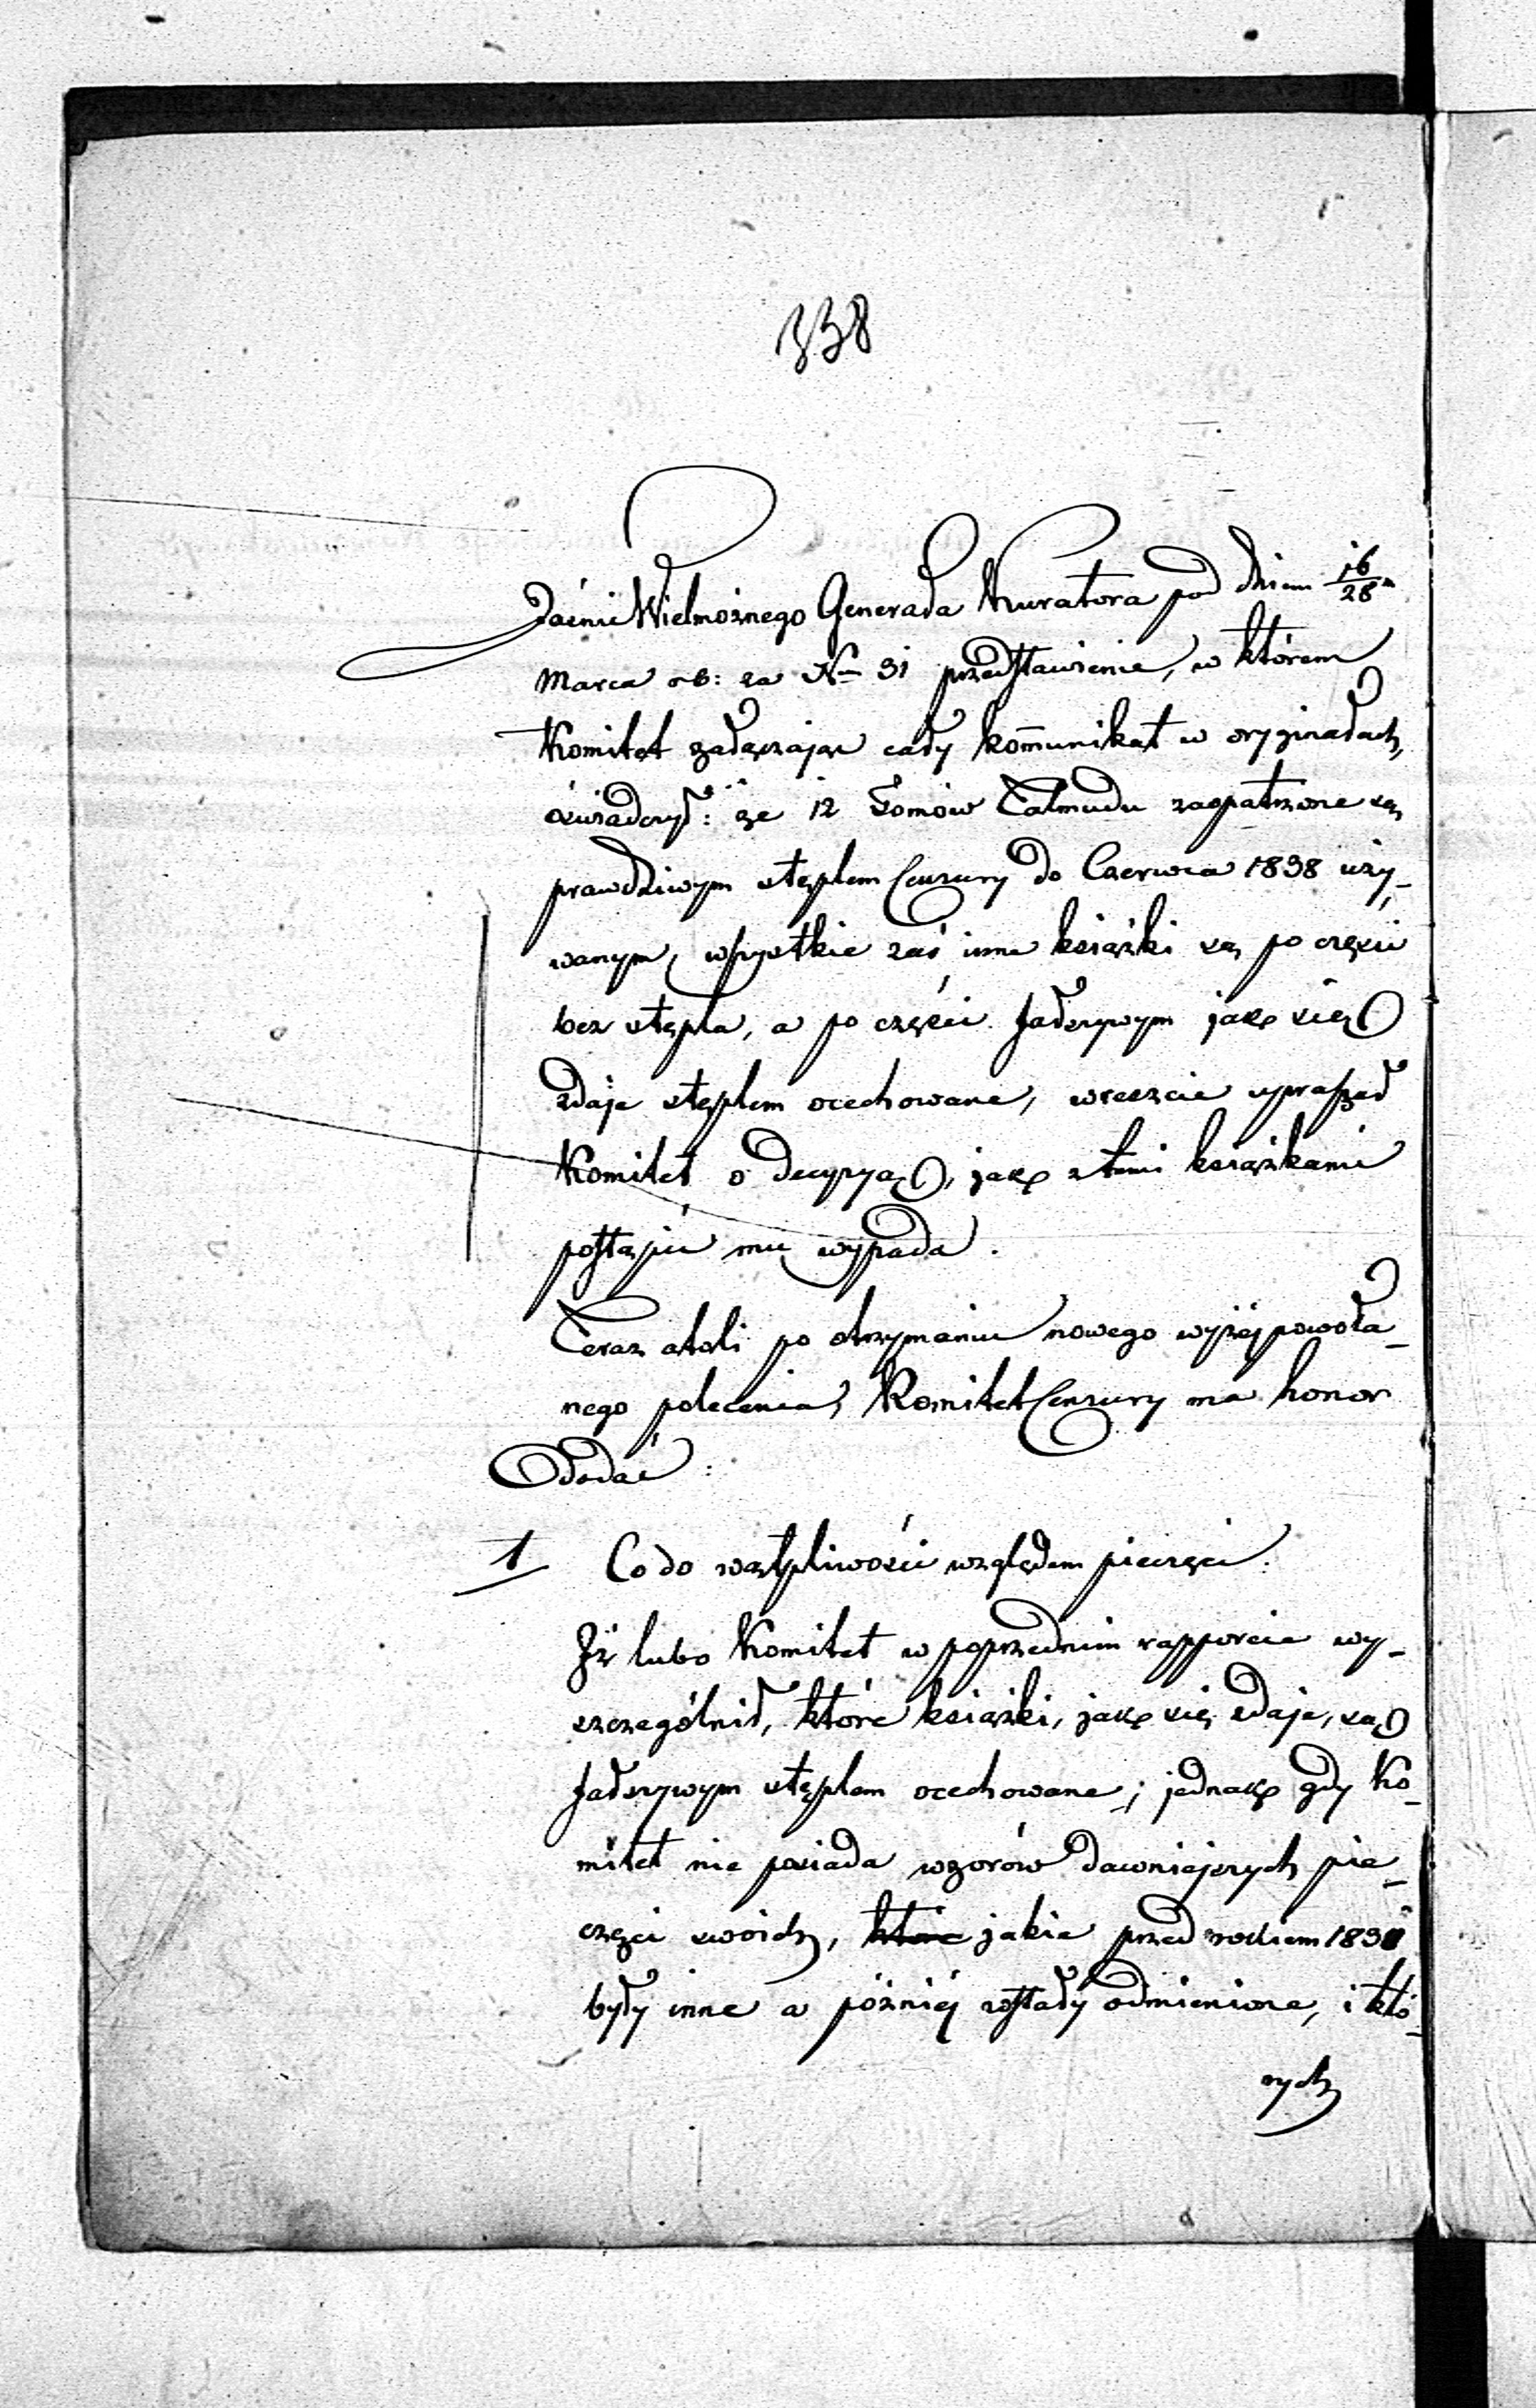 338
Jaśnie Wielmożnego Generała Kuratora pod dniem 16/28
Marca rb: za No 31 przedstawienie, w którem
Komitet załączając cały kommunikat w oryginałach,
oświadczył: że 12 Tomów Talmudu zaopatrzone są
prawdziwym stęplem Cenzury do Czerwca 1838 uży-
wanym, wszystkie zaś inne książki są po części
bez stępla, a po części fałszywym jak się
zdaje stęplem ocechowane, wreszcie upraszał
Komitet o decyzyą, jak z temi książkami
postąpić mu wypada.
Teraz atoli po otrzymaniu nowego wyżéj powoła-
nego polecenia, Komitet Cenzury ma honor
dodać:
1 Co do wątpliwości względem pieczęci.
Iż lubo Komitet w poprzednim rapporcie wy-
szczególnił, które książki, jak się zdaje, są
fałszywym stęplem ocechowane; jednak gdy Ko-
mitet nie posiada wzorów dawniejszych pie-
częci swoich, które jakie przed rokiem 183
były inne a późniéj zostały odmienione, i któ-
rych